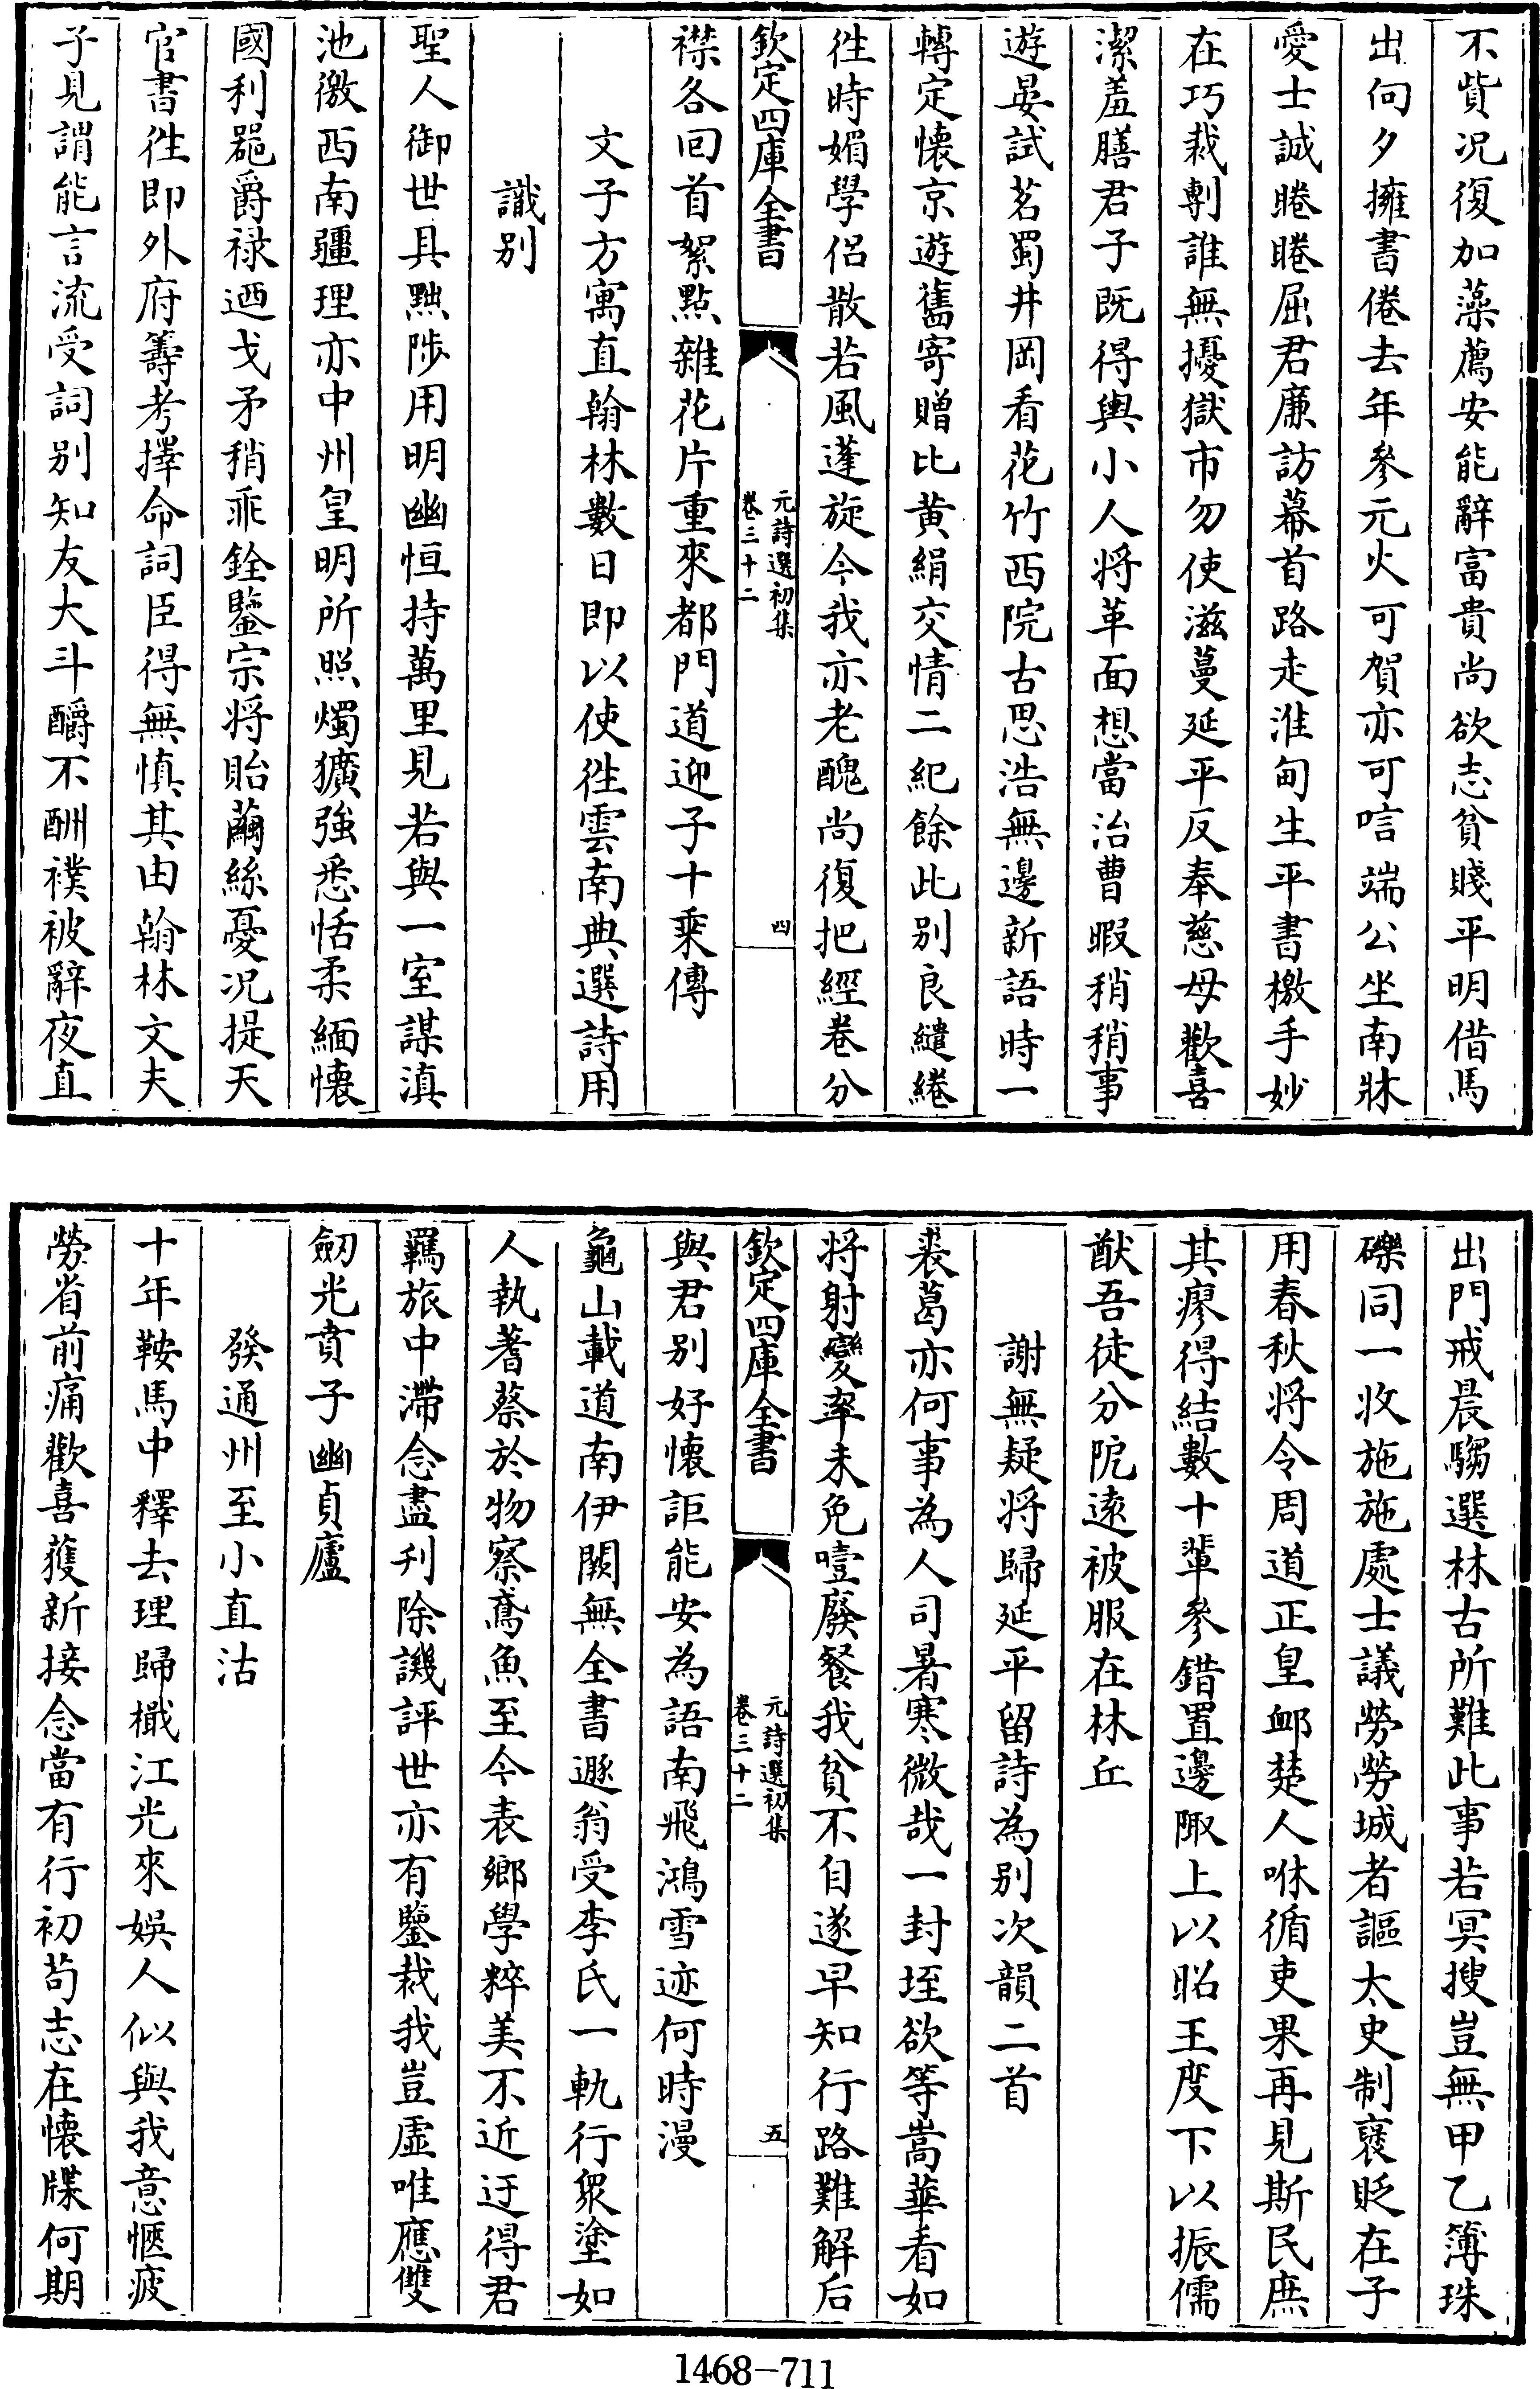 不貲况復加藻薦安能辭富貴尚欲志貧賤平明借馬
出向夕擁書倦去年參元火可賀亦可唁端公坐南牀
愛士誠睠睠屈君廉訪幕首路走淮甸生平書檄手妙
在巧裁剸誰無擾獄市勿使滋蔓延平反奉慈母歡喜
潔羞膳君子既得輿小人将革面想當治曹暇稍稍事
遊晏試茗蜀井岡看花竹西院古思浩無邊新語時一
轉定懐京遊舊寄贈比黄絹交情二紀餘此别良繾綣
徃時媚學侣散若風蓬旋今我亦老醜尚復把經卷分
欽定四庫全書
元詩選初集
卷三十二
四
襟各回首絮點雜花片重來都門道迎子十乗傳
文子方寓直翰林數日即以使徃雲南典選詩用
識别
聖人御世具黜陟用明幽恒持萬里見若與一室謀滇
池徼西南疆理亦中州皇明所照燭獷強悉恬柔緬懐
國利噐爵禄迺戈矛稍乖銓鑒宗将貽繭絲憂况提天
官書徃即外府籌考擇命詞臣得無慎其由翰林文夫
子見謂能言流受詞别知友大斗釂不酬襆被辭夜直
出門戒晨騶選林古所難此事若冥搜豈無甲乙簿珠
礫同一收施施處士議勞勞城者謳太史制襃貶在子
用春秋将令周道正皇䘏楚人咻循吏果再見斯民庶
其瘳得結數十輩參錯置邊陬上以昭王度下以振儒
猷吾徒分阨逺被服在林丘
謝無疑将歸延平留詩為别次韻二首
裘葛亦何事為人司暑寒微哉一封垤欲等嵩華看如
将射變率未免噎廢餐我貧不自遂早知行路難解后
欽定四庫全書
元詩選初集
卷三十二
五
與君别好懐詎能安為語南飛鴻雪迹何時漫
龜山載道南伊闕無全書遯翁受李氏一軌行衆塗如
人執蓍蔡於物察鳶魚至今表鄉學粹美不近迂得君
羈旅中滯念盡刋除譏評世亦有鑒裁我豈虛唯應雙
劒光賁子幽貞廬
發通州至小直沽
十年鞍馬中釋去理歸檝江光來娯人似與我意愜疲
勞省前痛歡喜獲新接念當有行初苟志在懐牒何期
1468-711